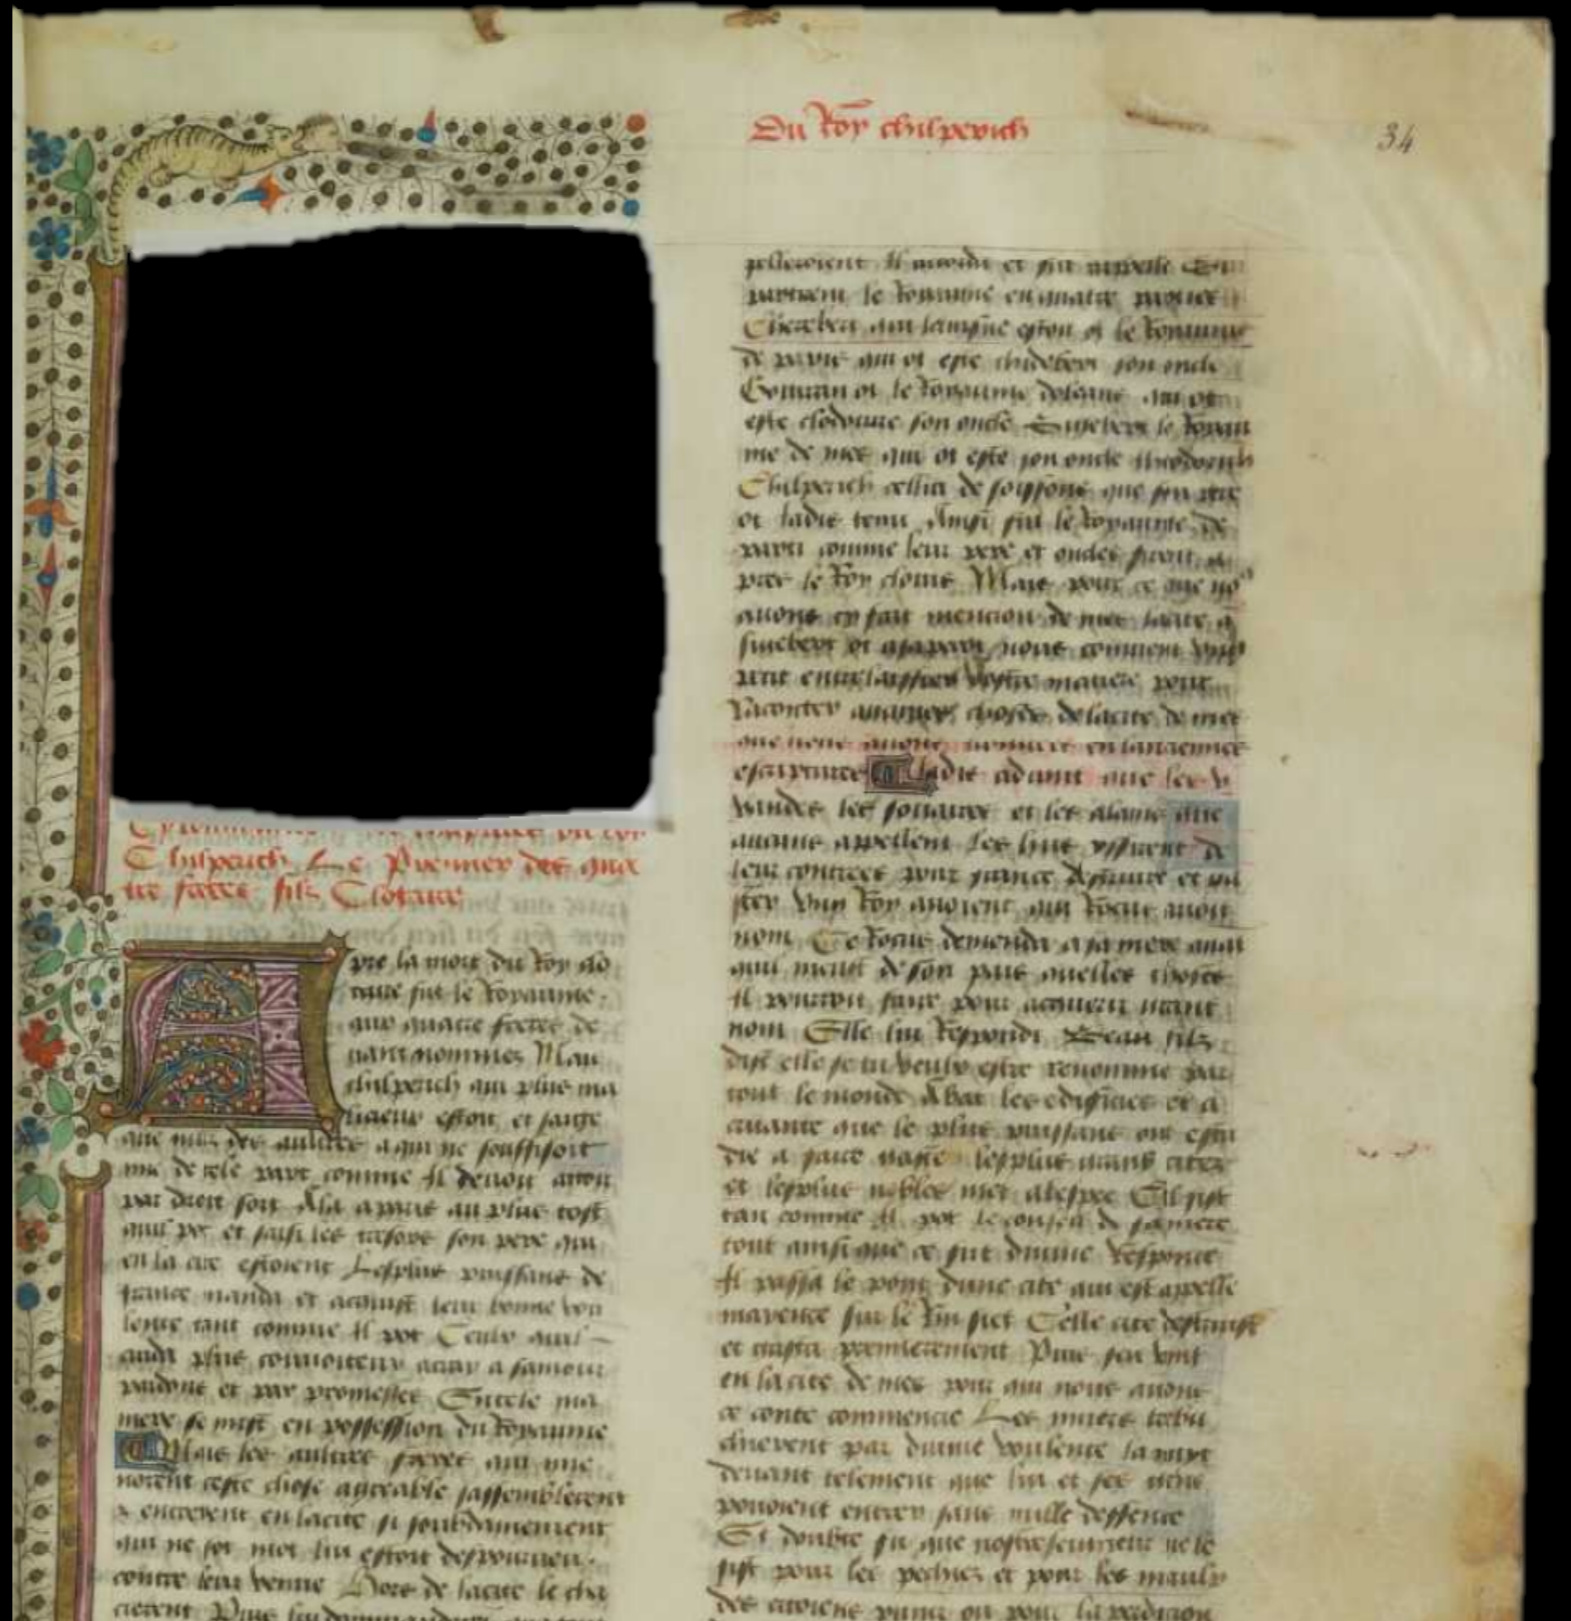 Du Roy chilperich
34
Chilperich Le Premier des qua
tre freres filz Clotaire
pres la mort du Roy clo
taire fut le Royaume
aux quatre freres de
uant nommez Mais
chilperich qui plus ma
licieux estoit et saige
que nulz des aultres a qui ne souffisoit
mie de tele part comme Il deuoit auoir
par droit sort Ala a paris au plus tost
quil pot et saisi les tresors son pere qui
en la cite estoient Les plus puissans de
france manda et acquist leur bonne vou
lente tant comme Il pot Ceulx quil
cuida plus conuoiteux attray a samour
par dons et par promesses En tele ma
niere se mist en possession du Royaume
Mais les aultres freres qui ne
norent ceste chose agreable sassemblerent
entrerent en la cite si soubdainement
qui ne sot mot lui estoit despourueu
contre leur venue Hors de la cite le cha
cierent Puis lui demanderent
pelleroient Il accorda et fut appelle
partirent le Royaume en quatre parties
Cherebert qui lainsne estoit ot le Royaume
de paris qui ot este childebert son oncle
Gontran ot le Royaume dorleans qui ot
este clodomire son oncle Sigebert le Royau
me de mes qui ot este son oncle theodorich
Chilperich cellui de soissons que son pere
ot jadis tenu Ainsi fut le Royaume de
parti comme leur pere et oncles firent a
pres le Roy clouis Mais pour ce que no9
auons cy fait mencion de mes la cite q
sigebert ot a sa part nous conuient vng
petit entrelaissier nostre matiere pour
Raconter aucunes choses de la cite de mes
que nous auons trouuees en lancienne
escripture Jadis aduint que les v
vandes les souaues et les alains que
aucuns appellent les huns yssirent de
leur contrees pour france destruire et ga
ster Vng Roy auoient qui Rocus auoit
nom Ce Rocus demanda a sa mere auant
quil meust de son pais quelles choses
Il pourroit faire pour acquerir grant
nom Elle lui Respondi Beau filz
dist elle se tu veulx estre renomme par
tout le monde Abat les edifices et a
crauante que le plus puissant ont estu
die a faire gaste les plus grans citez
et les plus nobles met a lespee Cil fist
tant comme Il pot le conseil de sa mere
tout ainsi que ce fut diuine Response
Il passa le pont dune cite qui est appelle
mayence sur le Rin siet Celle cite destruist
et gasta premierement Puis sen vint
en la cite de mes pour qui nous auons
ce conte commencie Les murs tresbu
chierent par diuine voulente la nuyt
deuant telement que lui et ses gens
pouoient entrer sans nulle deffence
Si doubte fu que nostreseigneur ne le
fist pour les pechiez et pour les maulx
des citoiens punir ou pour la perdicion